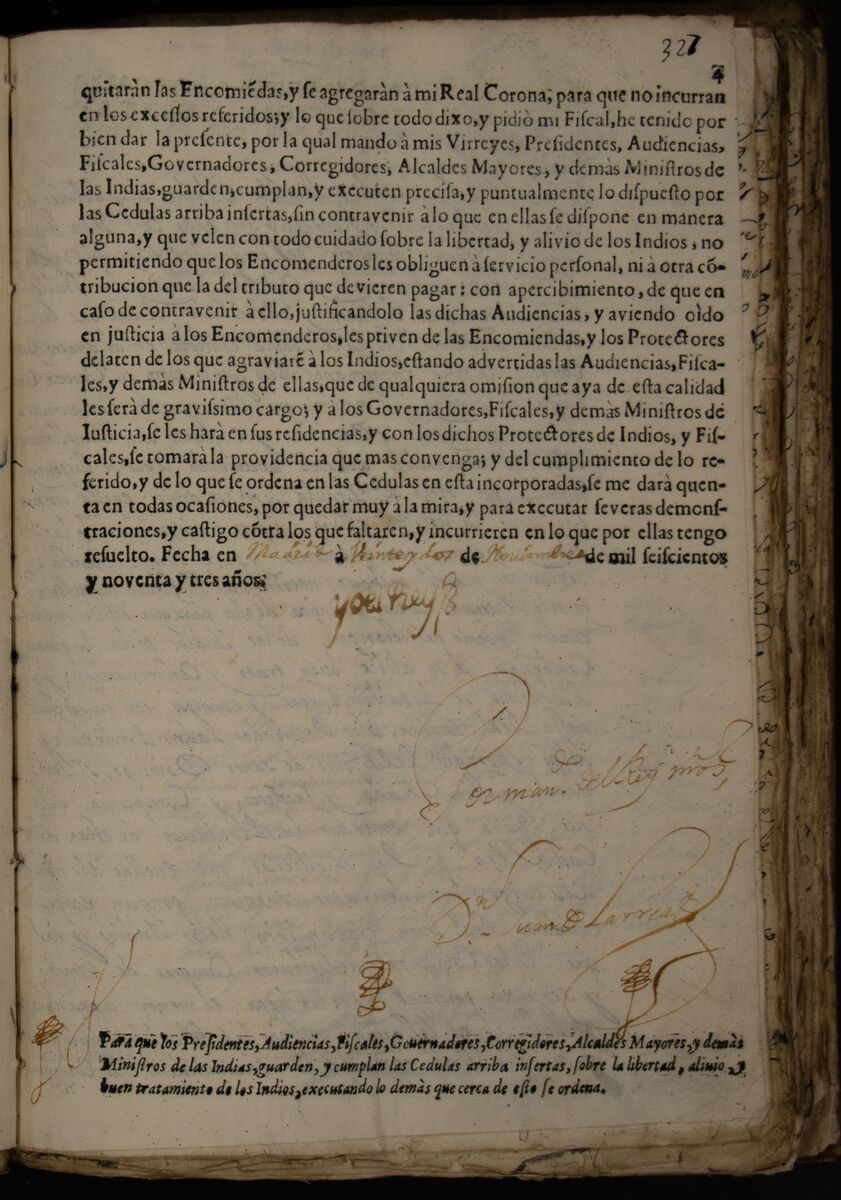 327
4
quitaràn las Encomiẽdas, y ſe agregaràn à mi Real Corona, para que no incurran
en los exceſſos referidos; y lo que ſobre todo dixo, y pidiò mi Fiſcal, he tenido por
bien dar la preſente, por la qual mando à mis Virreyes, Preſidentes, Audiencias,
Fiſcales, Governadores, Corregidores, Alcaldes Mayores, y demàs Miniſtros de
las Indias, guarden, cumplan, y executen preciſa, y puntualmente lo diſpueſto por
las Cedulas arriba inſertas, ſin contravenir à lo que en ellas ſe diſpone en manera
alguna, y que velen con todo cuidado ſobre la libertad, y alivio de los Indios, no
permitiendo que los Encomenderos les obliguen à ſervicio perſonal, ni à otra cõ-
tribucion que la del tributo que devieren pagar: con apercibimiento, de que en
caſo de contravenir à ello, juſtificandolo las dichas Audiencias, y aviendo oìdo
en juſticia à los Encomenderos, les priven de las Encomiendas, y los Protectores
delaten de los que agraviarẽ à los Indios, eſtando advertidas las Audiencias, Fiſca-
les, y demàs Miniſtros de ellas, que de qualquiera omiſion que aya de eſta calidad
les ſerà de graviſsimo cargo; y à los Governadores, Fiſcales, y demàs Miniſtros de
Iuſticia, ſe les harà en ſus reſidencias, y con los dichos Protectores de Indios, y Fiſ-
cales, ſe tomarà la providencia que mas convenga; y del cumplimiento de lo re-
ferido, y de lo que ſe ordena en las Cedulas en eſta incorporadas, ſe me darà quen-
ta en todas ocaſiones, por quedar muy à la mira, y para executar ſeveras demonſ-
traciones, y caſtigo cõtra los que faltaren, y incurrieren en lo que por ellas tengo
reſuelto. Fecha en Madrid à Veinte y dos de Noviembre de mil ſeiſcientos
y noventa y tres años;
yo el Rey
Por man.do del Rey nro s.r
D.n Juan de Larrea
Para que los Preſidentes, Audiencias, Fiſcales, Gouernadores, Corregidores, Alcaldes Mayores, y demàs
Miniſtros de las Indias, guarden, y cumplan las Cedulas arriba inſertas, ſobre la libertad, aliuio, y
buen tratamiento de los Indios, executando lo demàs que cerca de eſto ſe ordena.